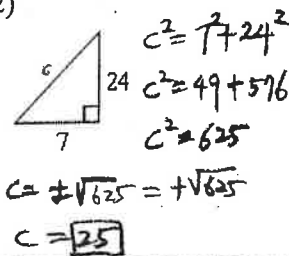 2)
c
24
7
c² = 7² + 24²
c² = 49 + 576
c² = 625
c = ±√625 = +√625
c = 25